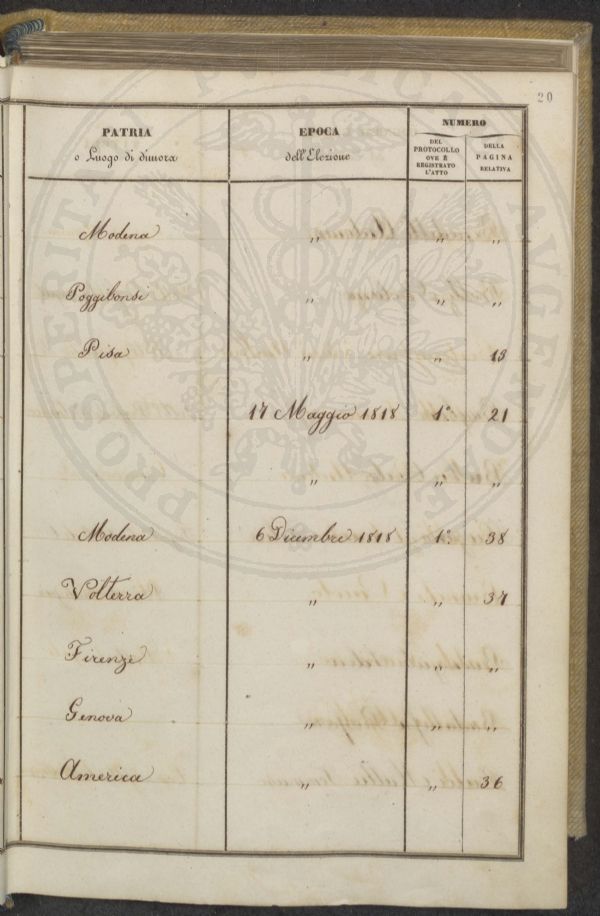 20
PATRIA
o Luogo di dimora
EPOCA
dell'Elezione
NUMERO
DEL
PROTOCOLLO
OVE È
REGISTRATO
L'ATTO
DELLA
PAGINA
RELATIVA
Modena „ „ „
Poggibonsi „ „ „
Pisa „ „ 15
17 Maggio 1818 1º. 21
„ „ „
Modena 6 Dicembre 1818 1º. 38
Volterra „ „ 37
Firenze „ „ „
Genova „ „ „
America „ „ 36
PROSPERITATI PUBLICAE AUGENDAE